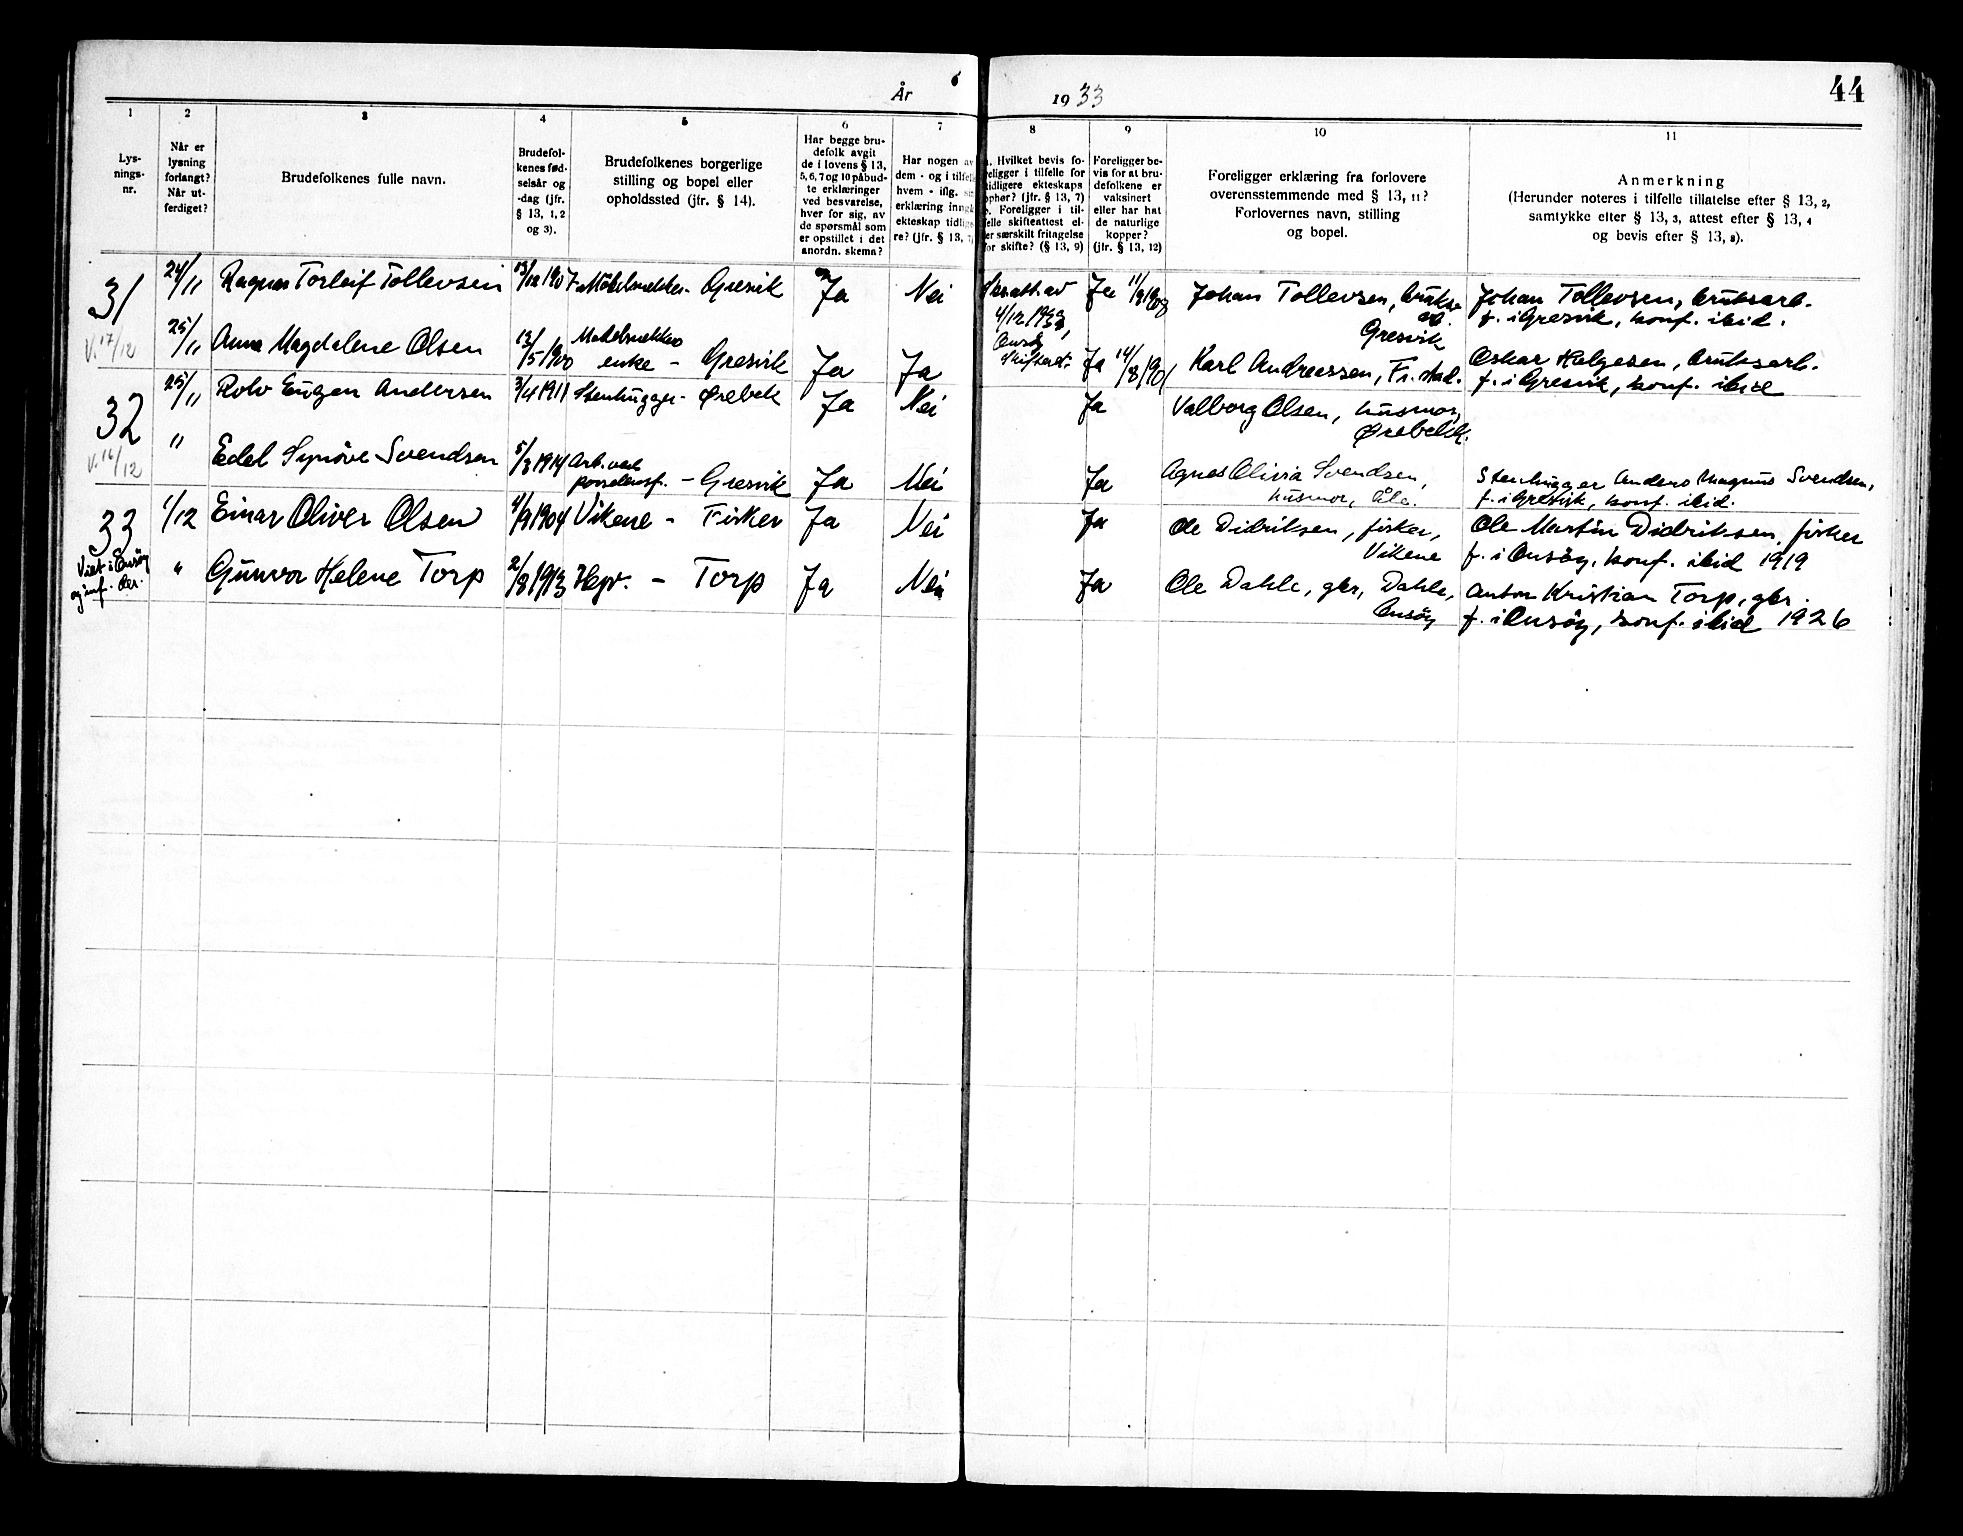 År 1933
44
1 2 3 4 5 6 7 8 9 10 11
Lys-
nings-
nr.
Når er
lysning
forlangt?
Når ut-
ferdiget?
Brudefolkenes fulle navn.
Brudefol-
kenes fød-
selsår og
-dag (jfr.
§ 13, 1, 2
og 3).
Brudefolkenes borgerlige
stilling og bopel eller
opholdssted (jfr. § 14).
Har begge bru-
defolk avgit
de i lovens § 13,
5, 6, 7 og 10 påbud-
te erklæringer
ved besvarelse,
hver for sig, av
de spørsmål som
er opstillet i det
anordn. skema?
Har nogen av
dem - og i tilfelle
hvem - iflg.
erklæring inngå
ekteskap tidlige
re? (jfr. § 13,
Hvilket bevis fo-
religger i tilfelle for
tidligere ekteskaps
ophør? (jfr. § 13, 7)
b. Foreligger i til-
felle skifteattest el-
ler særskilt fritagelse
for skifte? (§ 13, 9)
Foreligger be-
vis for at bru-
defolkene er
vaksinert
eller har hat
de naturlige
kopper?
(jfr. § 13, 12)
Foreligger erklæring fra forlovere
overensstemmende med § 13, 11?
Forlovernes navn, stilling
og bopel.
Anmerkning
(Herunder noteres i tilfelle tillatelse efter § 13, 2,
samtykke efter § 13, 3, attest efter § 13, 4
og bevis efter § 13, 8).
31 24/11 Ragnar Torleif Tollevsen 13/12 1907 Møbelsnekker - Gresvik Ja Nei Skratt av Ja 11/9 1908 Johan Tollevsen, bruksarb. Johan Tollevsen, bruksarb.
4/12 1933, Gresvik f. i Gresvik, konf. ibid.
V. 17/12 25/11 Anna Magdalene Olsen 13/5 1900 Møbelsnekker
enke - Gresvik Ja Ja Onsøy
skifteret. Ja 14/8 1901 Karl Andreassen, Fr.stad. Oskar Helgesen, bruksarb.
f. i Gresvik, konf. ibid
32 25/11 Rolv Eugen Andersen 3/4 1911 Stenhugger - Ørebek Ja Nei Ja Valborg Olsen, husmor,
Ørebekk.
V. 16/12 " Edel Synöve Svendsen 5/3 1914 Arb. ved
porselensf. - Gresvik Ja Nei Ja Agnes Olivia Svendsen, Stenhugger Anders Magnus Svendsen,
husmor, Åle. f. i Gresvik, konf. ibid.
33 1/12 Einar Oliver Olsen 4/9 1904 Vikene - Fisker Ja Nei Ja Ole Didriksen, fisker, Ole Martin Didriksen, fisker
Vikene f. i Onsøy, konf. ibid 1919
Viet i Onsøy
og inf. der. " Gunvor Helene Torp 2/8 1913 Hegv. - Torp Ja Nei Ja Ole Dahle, gbr, Dahle, Anton Kristian Torp, gbr.
Onsøy f. i Onsøy, konf. ibid 1926